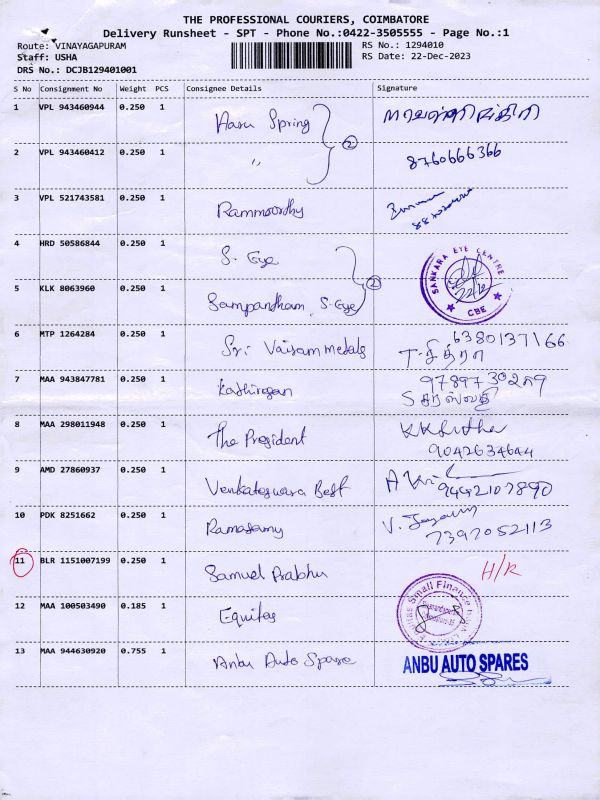 THE PROFESSIONAL COURIERS, COIMBATORE
Delivery Runsheet - SPT - Phone No.:0422-3505555 - Page No.:1
Route: VINAYAGAPURAM
Staff: USHA
DRS No.: DCJB129401001
RS No.: 1294010
RS Date: 22-Dec-2023
S No Consignment No Weight PCS Consignee Details Signature
1 VPL 943460944 0.250 1 Haru Spring
2 VPL 943460412 0.250 1 " 2 8760666366
3 VPL 521743581 0.250 1 Rammoorthy
4 HRD 50586844 0.250 1 S. Eye
SANKARA EYE CENTRE
22/12
CBE
5 KLK 8063960 0.250 1 Sampantham, S-Eye 2
6 MTP 1264284 0.250 1 Sri Vaisam metals 6380137166
T. சித்ரா
7 MAA 943847781 0.250 1 Kathiresan 9789730259
S சரஸ்வதி
8 MAA 298011948 0.250 1 The President
9042634644
9 AMD 27860937 0.250 1 Venkateswara Best 9442107890
10 PDK 8251662 0.250 1 Ramasamy V.
7397052113
11 BLR 1151007199 0.250 1 Samuel Prabhu H/R
12 MAA 100503490 0.185 1 Equitas
Small Finance
13 MAA 944630920 0.755 1 Anbu Auto Spare
ANBU AUTO SPARES